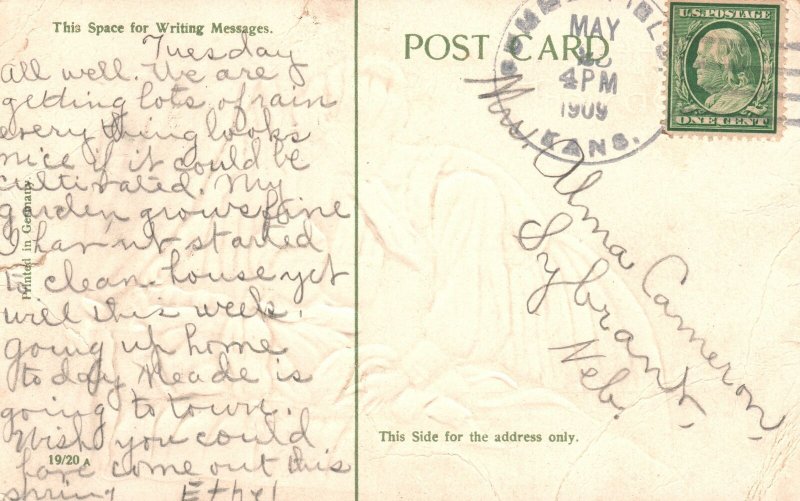 This Space for Writing Messages.
Tuesday
all well. We are
getting lots, of rain
every thing looks
nice if it could be
cultivated. My
garden, grows fine
I hav'nt started
to clean house yet
will this week.
going up home
to day Meade is
going to town.
Wish you could
have come out this
spring Ethyl
Printed in Germany.
19/20 A
POST CARD
MAY
4PM
1909
KANS.
U.S. POSTAGE
ONE CENT
Mrs. Alma Cameron,
Sybrant,
Neb.
This Side for the address only.